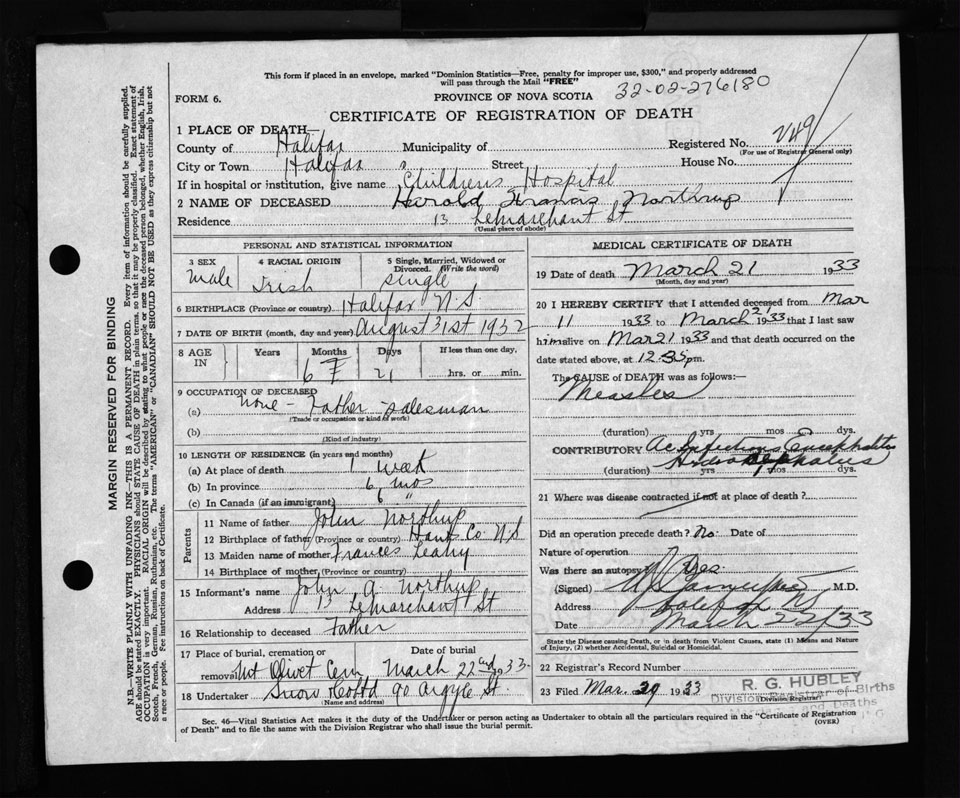 This form if placed in an envelope, marked "Dominion Statistics—Free, penalty for improper use, $300," and properly addressed
will pass through the Mail "FREE"
32-02-276180
FORM 6.
PROVINCE OF NOVA SCOTIA
CERTIFICATE OF REGISTRATION OF DEATH
1 PLACE OF DEATH—
Registered No. 249
(For use of Registrar General only)
County of Halifax Municipality of
City or Town Halifax Street House No.
If in hospital or institution, give name Childrens Hospital
2 NAME OF DECEASED Harold Francis Northrup
Residence 13 LeMarchant St
(Usual place of abode)
PERSONAL AND STATISTICAL INFORMATION
3 SEX 4 RACIAL ORIGIN 5 Single, Married, Widowed or Divorced. (Write the word)
male Irish single
6 BIRTHPLACE (Province or country) Halifax N.S.
7 DATE OF BIRTH (month, day and year) August 31st 1932
8 AGE IN Years Months Days If less than one day,
6 21 hrs. or min.
9 OCCUPATION OF DECEASED
(a) None - Father salesman
(Trade or occupation or kind of work)
(b)
(Kind of industry)
10 LENGTH OF RESIDENCE (in years and months)
(a) At place of death 1 week
(b) In province 6 mos
(c) In Canada (if an immigrant) 6 "
Parents
11 Name of father John Northup
12 Birthplace of father (Province or country) Hants Co N S
13 Maiden name of mother Frances Leahy
14 Birthplace of mother (Province or country)
15 Informant's name John A. Northup
Address 13 LeMarchant St
16 Relationship to deceased Father
17 Place of burial, cremation or removal Date of burial
Mt Olivet Cem March 22nd 1933
18 Undertaker Snow & Co Ltd 90 Argyle St.
(Name and address)
MEDICAL CERTIFICATE OF DEATH
19 Date of death March 21 1933
(Month, day and year)
20 I HEREBY CERTIFY that I attended deceased from Mar
11 1933 to March 21 1933 that I last saw
him alive on Mar 21 1933 and that death occurred on the
date stated above, at 12.35 pm.
The CAUSE OF DEATH was as follows:—
Measles
(duration) yrs mos dys.
CONTRIBUTORY Ac Infectious Encephalitis
(duration) yrs mos dys.
21 Where was disease contracted if not at place of death?
Did an operation precede death? No. Date of
Nature of operation
Was there an autopsy? Yes
(Signed) M.D.
Address Halifax NS
Date March 22/33
State the Disease causing Death, or in death from Violent Causes, state (1) Means and Nature
of Injury, (2) whether Accidental, Suicidal or Homicidal.
22 Registrar's Record Number
23 Filed Mar. 29 1933
R. G. HUBLEY
(Division Registrar)
Division Registrar of Births
Marriages and Deaths
Sec. 46—Vital Statistics Act makes it the duty of the Undertaker or person acting as Undertaker to obtain all the particulars required in the "Certificate of Registration
of Death" and to file the same with the Division Registrar who shall issue the burial permit.
(OVER)
MARGIN RESERVED FOR BINDING
N.B.—WRITE PLAINLY WITH UNFADING INK—THIS IS A PERMANENT RECORD. Every item of information should be carefully supplied.
AGE should be stated EXACTLY. PHYSICIANS should STATE CAUSE OF DEATH in plain terms, so that it may be properly classified. Exact statement of
OCCUPATION is very important. RACIAL ORIGIN will be described by stating to what people or race the deceased person belonged, whether English, Irish,
Scotch, French, German, Russian, Ruthenian, etc. The terms "AMERICAN" or "CANADIAN" SHOULD NOT BE USED as they express citizenship but not
a race or people. Fee instructions on back of Certificate.